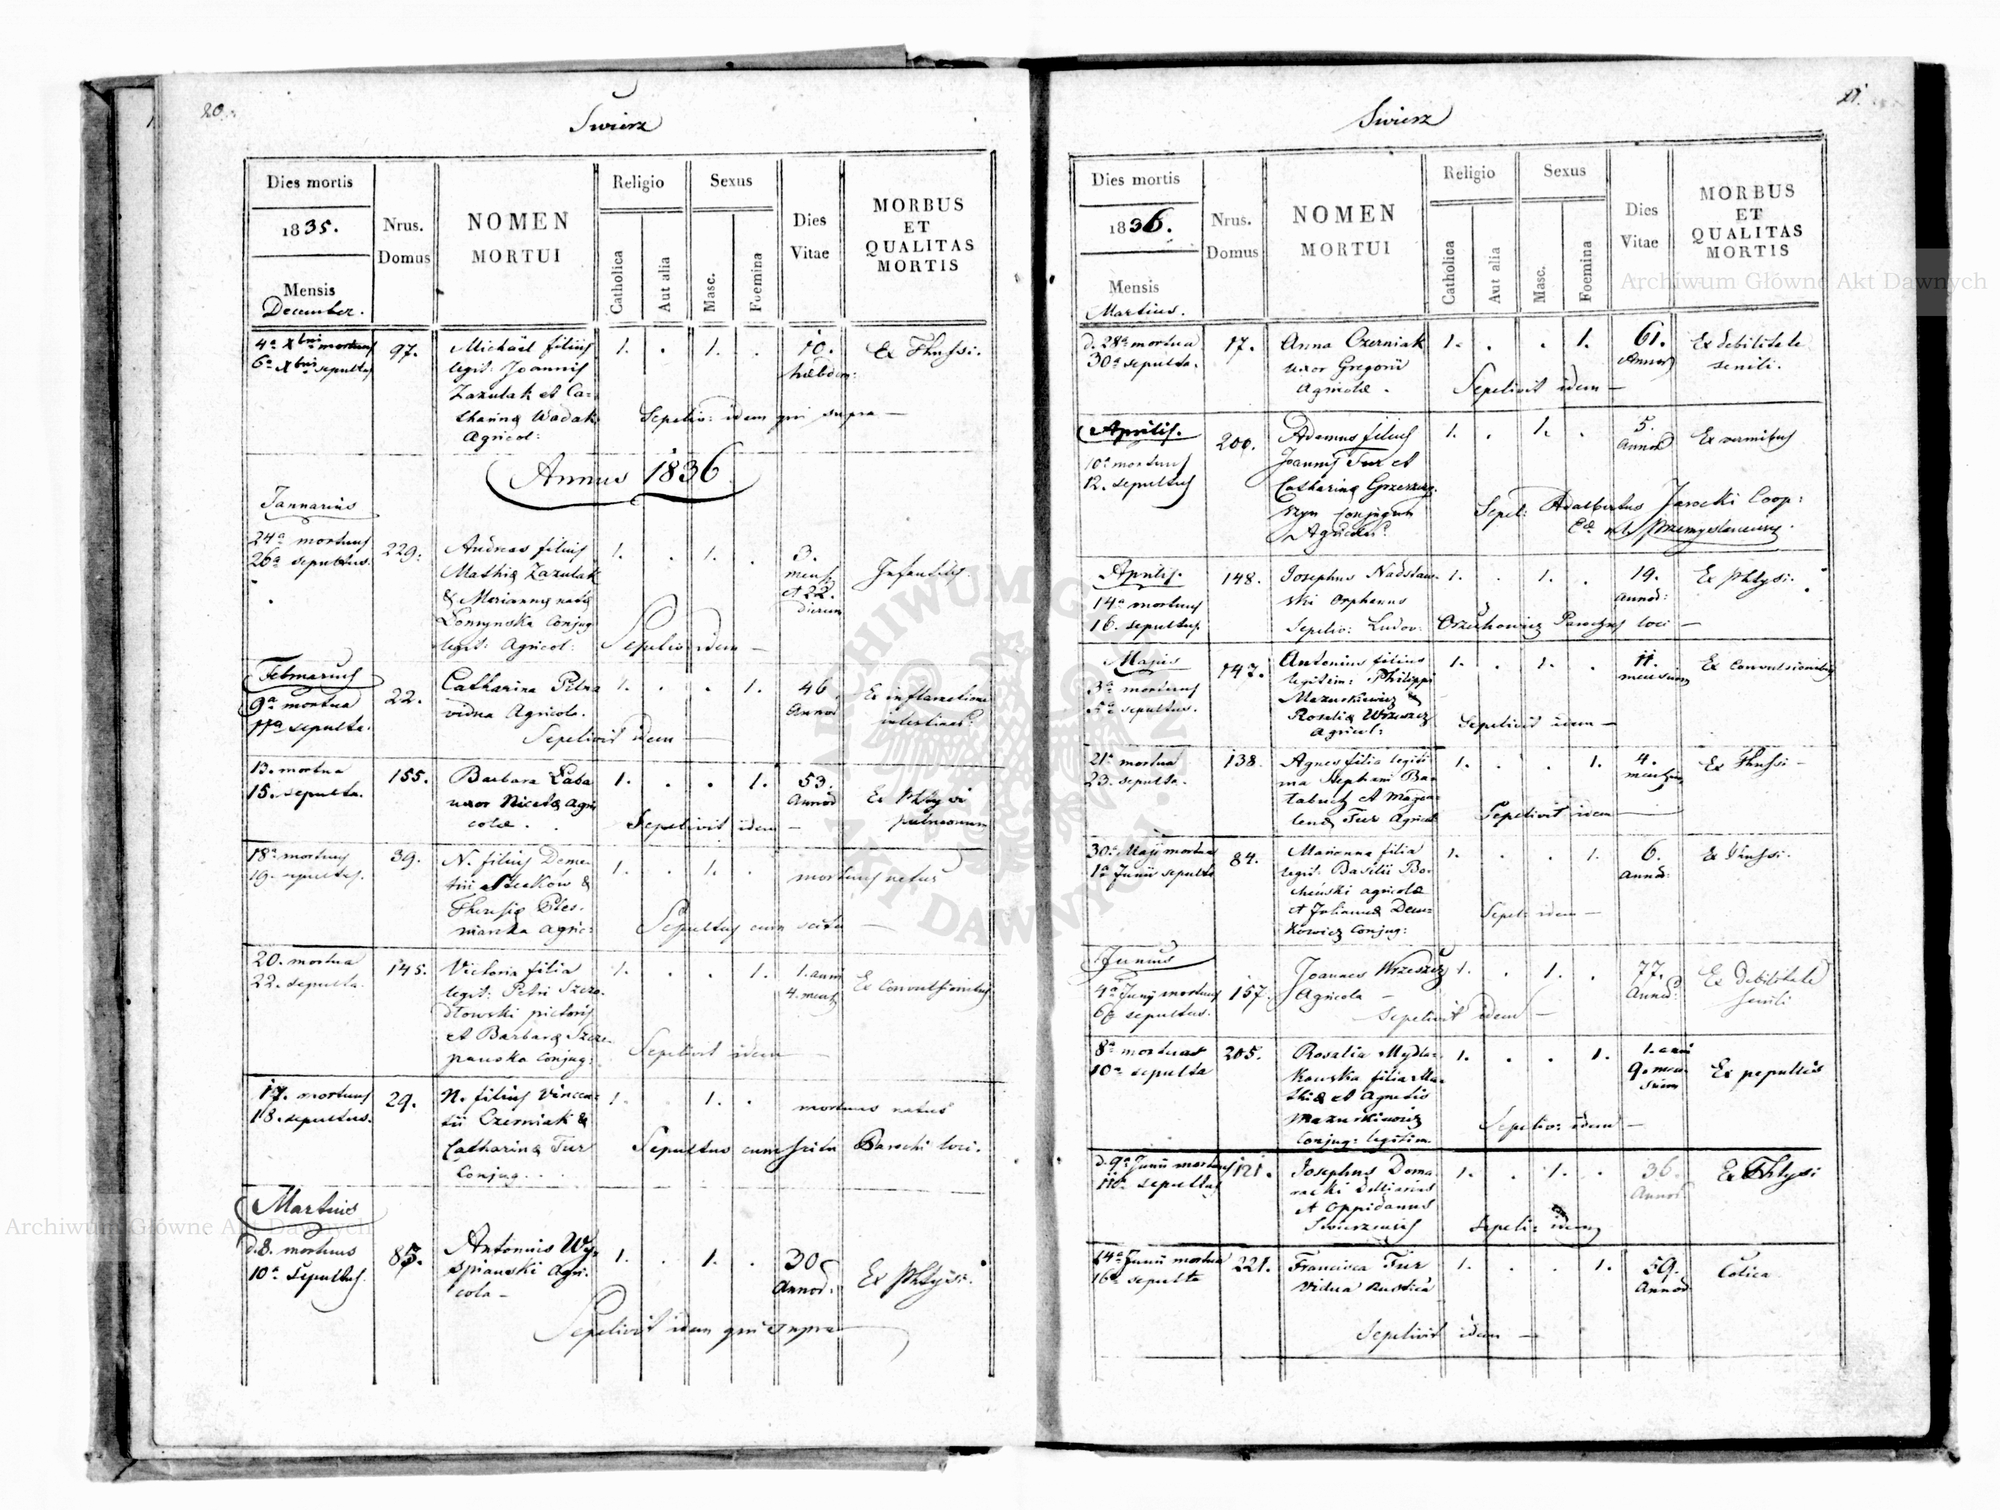 20.
Swirz
Dies mortis
1835.
Mensis
December.
Nrus.
Domus
NOMEN
MORTUI
Religio
Catholica
Aut alia
Sexus
Masc.
Foemina
Dies
Vitae
MORBUS
ET
QUALITAS
MORTIS
4a Xbris mortuus
6a Xbris sepultus
97.
Michael filius
legit: Joannis
Zazulak et Ca-
tharinæ Wadak
Agricol:
1. . 1. .
10.
hebdom:
Ex Thussi.
Sepeliv: idem qui supra —
Annus 1836
Januarius
24a mortuus
26a sepultus.
229.
Andreas filius
Mathiæ Zazulak
& Mariannæ natæ
conjug
legit: Agricol:
1. . 1. .
3.
mens
et 22.
dierum
Sepelivit idem —
Februarius
9a mortua
11a sepulta.
22.
Catharina
vidua Agricolæ.
1. . . 1.
46
Annor
Ex inflamatione
Sepelivit idem —
13. mortua
15. sepulta.
155.
Barbara Laba
uxor Nicetæ Agri
colæ.
1. . . 1.
53.
Annor
Ex Phtysi
pulmonum
Sepelivit idem —
18a mortuus
19. sepultus.
39.
N. filius Deme-
trii &
Theresiæ Ples-
niarska Agric:
1. . 1. .
mortuus natus
Sepultus cum scitu —
20. mortua
22. sepulta.
145.
Victoria filia
legit: Petri
pictoris
et Barbaræ Szcze-
panska Conjug:
1. . . 1.
1. anni
4. mens
Ex Convulsionibus
Sepelivit idem —
17. mortuus
18. sepultus.
29.
N. filius Vincen-
tii Czerniak &
Catharinæ Tur
Conjug.
1. . 1. .
mortuus natus
Sepultus cum scitu Parochi loci.
Martius
d. 8. mortuus
10a Sepultus.
85.
Antonius Wy-
spianski Agri-
cola —
1. . 1. .
30
Annor:
Ex Phtysi.
Sepelivit idem qui supra
21.
Swirz
Dies mortis
1836.
Mensis
Martius.
Nrus.
Domus
NOMEN
MORTUI
Religio
Catholica
Aut alia
Sexus
Masc.
Foemina
Dies
Vitae
MORBUS
ET
QUALITAS
MORTIS
d. 28a mortua
30a sepulta.
17.
Anna Czerniak
uxor Gregorii
Agricolæ.
1. . . 1.
61.
Annor
Ex debilitate
senili.
Sepelivit idem —
Aprilis.
10a mortuus
12. sepultus
200.
Adamus filius
Joannis Tur et
Catharinæ
Conjugum
Agricolar.
1. . 1. .
5.
Annor
Ex vermibus
Sepel: Adalbertus Jarocki Coop:
Przemyslaniensis.
Aprilis.
14a mortuus
16. sepultus.
148.
Josephus Nadslaw-
ski Orphanus
1. . 1. .
19.
Annor:
Ex Phtysi.
Sepeliv: Ludov: Orzechowicz Parochus loci —
Majus
3a mortuus
5a sepultus.
147.
Antonius filius
legitim: Philippi
Mazurkiewicz &
Rosaliæ Wrzeszcz
Agricol:
1. . 1. .
11.
mensium
Ex Convulsionibus
Sepelivit idem —
21a mortua
23. sepulta.
138.
Agnes filia legiti
ma Stephani Ba-
labuch et Magda-
lenæ Tur Agricol
1. . . 1.
4.
mensium
Ex Thussi —
Sepelivit idem —
30a Maji mortua
1a Junii sepulta
84.
Marianna filia
legit: Basilii Bo-
agricolæ
et Julianna Dem-
kowicz Conjug:
1. . . 1.
6.
Annor:
Ex Thussi.
Sepel: idem —
Junius
4a Junii mortuus
6a sepultus.
157.
Joannes Wrzeszcz
Agricola —
1. . 1. .
77.
Annor:
Ex debilitate
senili
Sepelivit idem —
8a mortua
10a sepulta
205.
Rosalia Mydla-
kowska filia Ma-
thiæ et Agnetis
Mazurkiewicz
Conjug: legitim
1. . . 1.
1. anni
9. men-
sium
Ex
Sepeliv: idem —
d. 9a Junii mortuus
11a sepultus
121.
Josephus Doma-
racki
et Oppidanus
1. . 1. .
36.
Annor.
Ex Phtysi
Sepeli: idem
14a Junii mortua
16a sepulta
221.
Francisca Tur
Vidua Rustica
1. . . 1.
59.
Annor
Colica
Sepelivit idem —
Archiwum Główne Akt Dawnych
Archiwum Główne Akt Dawnych